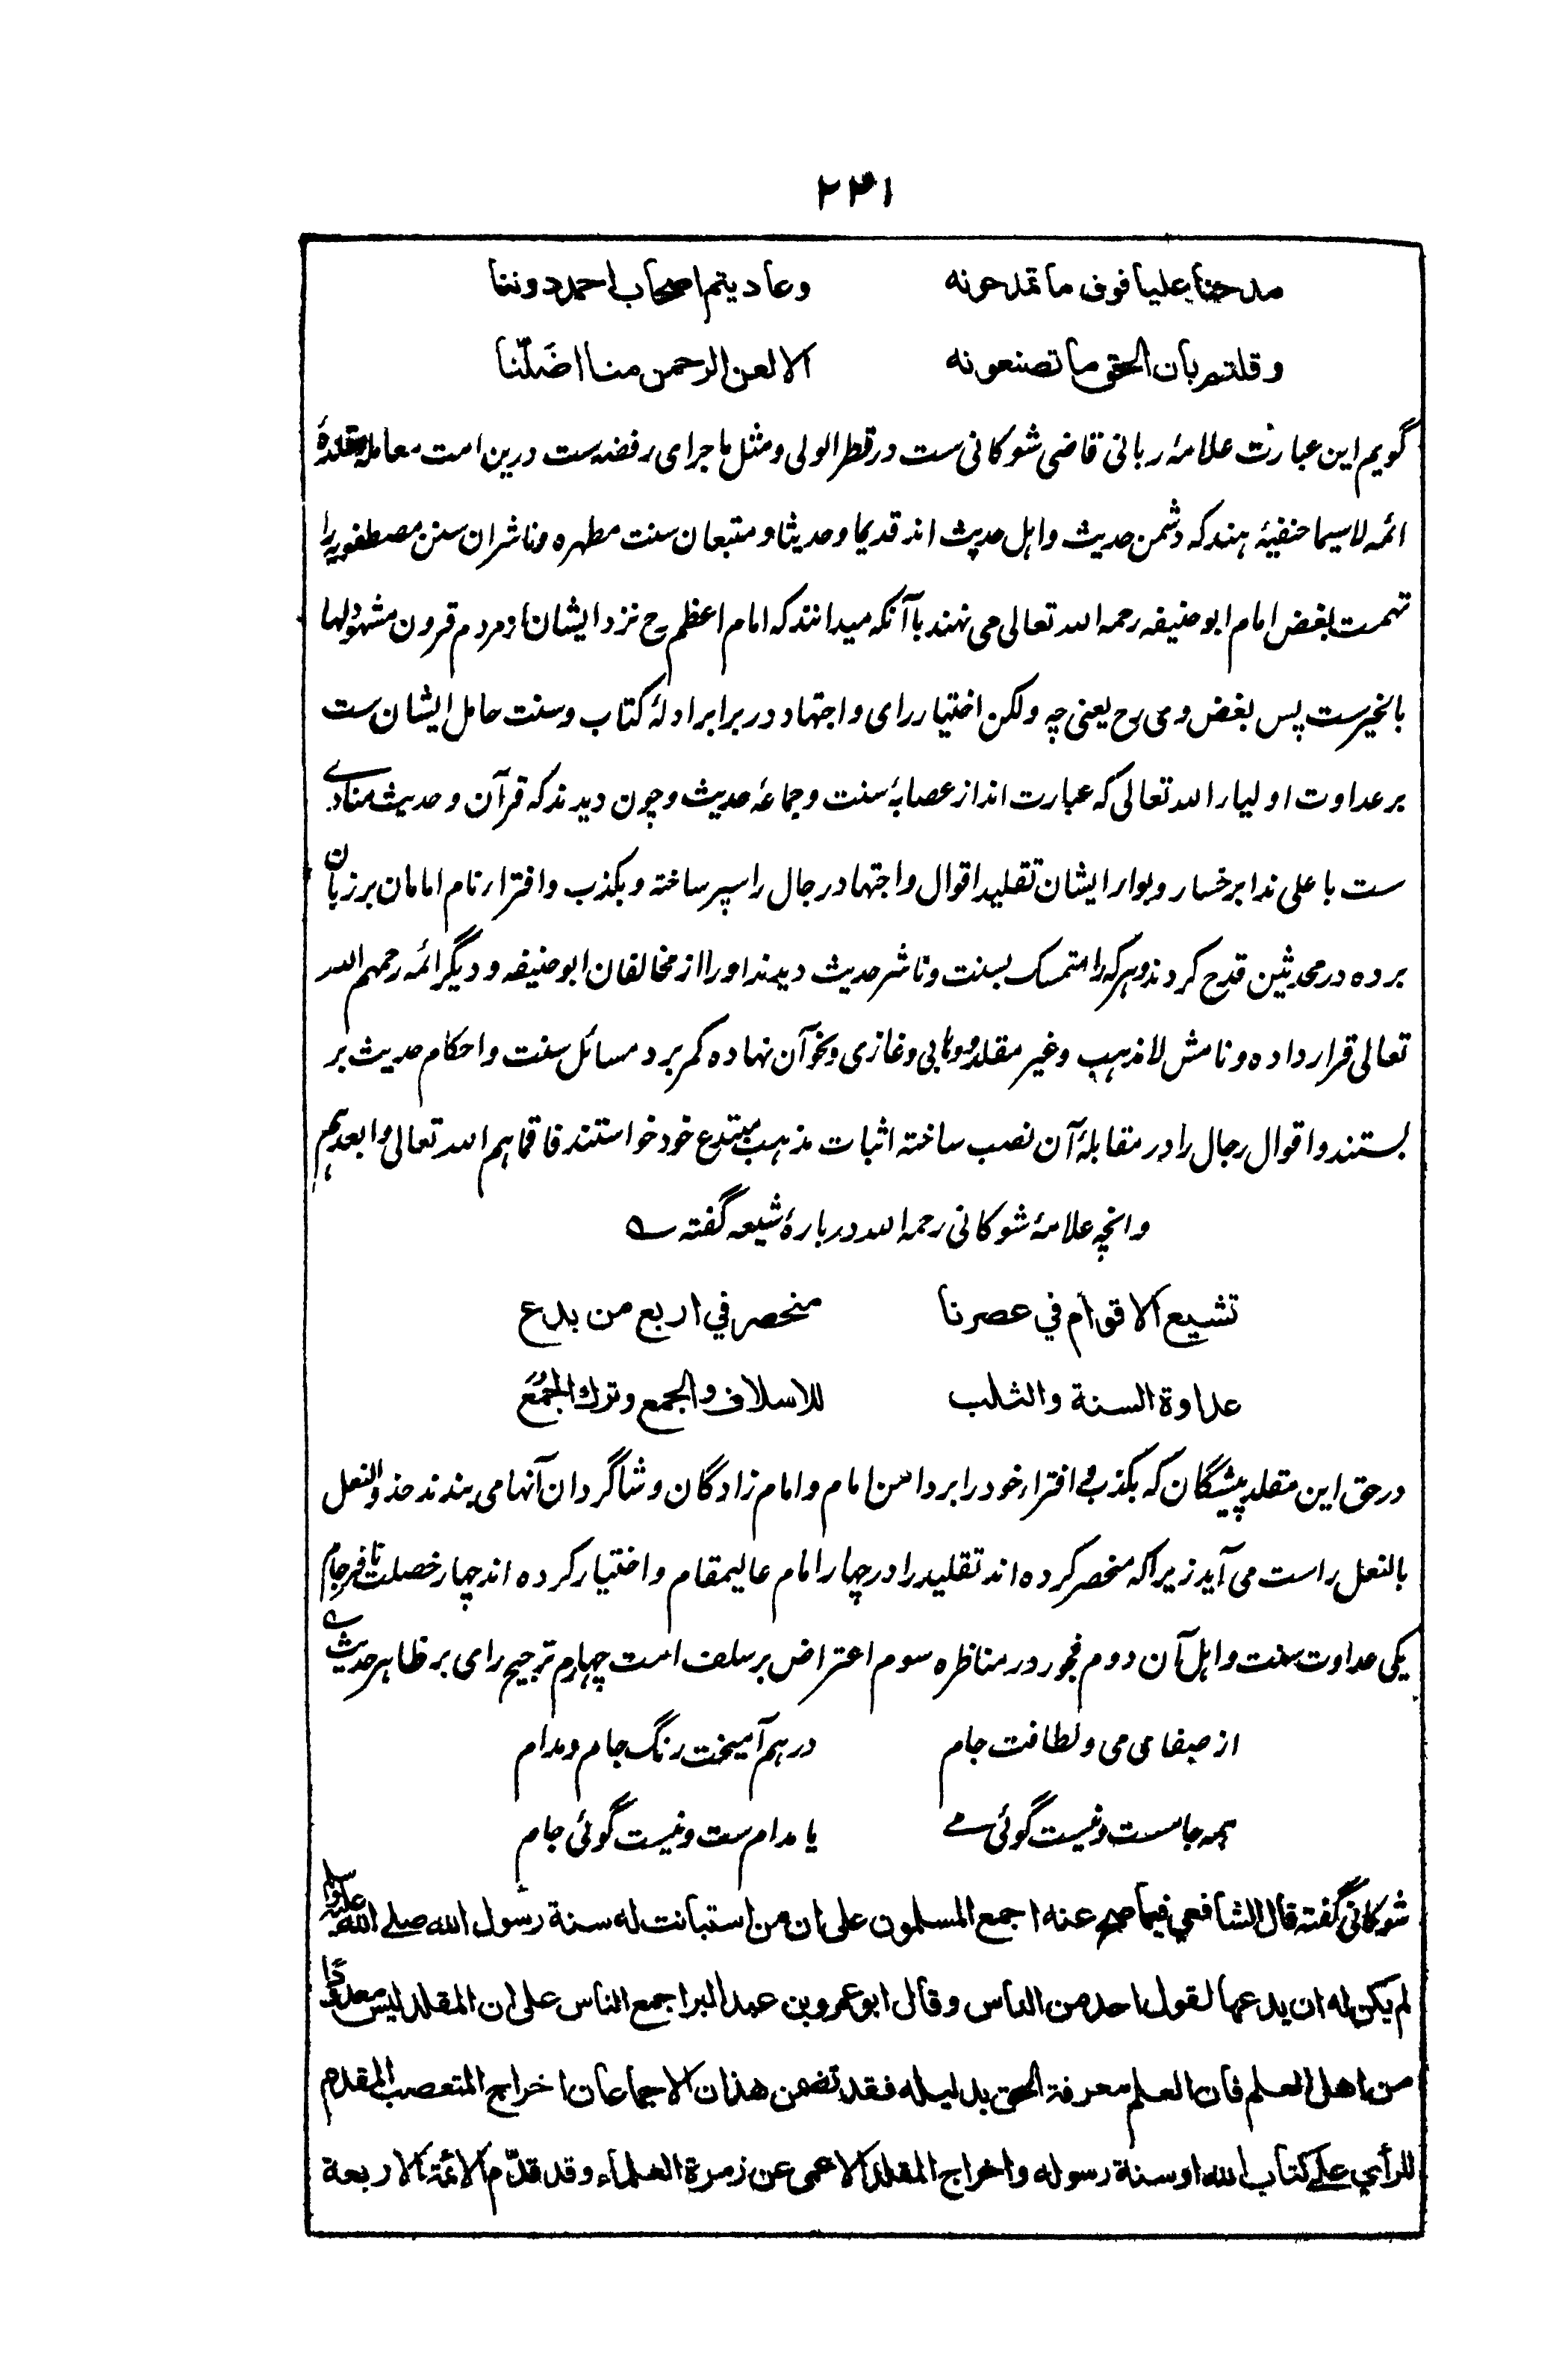 ۲۴۱
مدحنا عليا فوق ما تمدحونه وعاديتم اصحاب احمد دوننا
وقلتم بان الحق ما تصنعونه الا لعن الرحمن منا اضَلّنا
گویم این عبارت علامۂ ربانی قاضی شوکانی ست در قطر الولی و مثل ماجرای رفضه ست درین امت معاملۂ مقلدۂ
ائمه لاسیما حنفیۂ هند که دشمن حدیث و اهل حدیث اند قدیما و حدیثا و متبعان سنت مطهره و ناشران سنن مصطفویه را
تهمت بغض امام ابو حنیفه رحمه الله تعالی می نهند با آنکه میدانند که امام اعظم رح نزد ایشان از مردم قرون مشهود لها
بالخیر ست پس بغض وی رح یعنی چه ولکن اختیار رای و اجتهاد در برابر ادلۂ کتاب و سنت حامل ایشان ست
بر عداوت اولیاء الله تعالی که عبارت اند از عصابۂ سنت و جماعۂ حدیث و چون دیدند که قرآن و حدیث منادی
ست باعلی ندا بر خسار و بوار ایشان تقلید اقوال و اجتهاد رجال را سپر ساخته و بکذب و افترا نام امامان بر زبان
برده در محدثین قدح کردند و هر که را متمسک بسنت و ناشر حدیث دیدند او را از مخالفان ابو حنیفه و دیگر ائمه رحمهم الله
تعالی قرار داده و نامش لا مذهب و غیر مقلد و وهابی و غازی و نحو آن نهاده کمر برد مسائل سنت و احکام حدیث بر
بستند و اقوال رجال را در مقابلۂ آن نصب ساخته اثبات مذهب مبتدع خود خواستند فاقماهم الله تعالی و ابعدهم
و انچه علامۂ شوکانی رحمه الله در بارۂ شیعه گفته
تشيع الاقوام في عصرنا منحصر في اربع من بدع
عداوة السنة والثلب للاسلاف والجمع وترك الجُمَع
در حق این مقلد پیشگان که بکذب و افترا خود را بر دامن امام و امام زادگان و شاگردان آنها می بندند حذو النعل
بالنعل راست می آید زیراکه منحصر کرده اند تقلید را در چهار امام عالیمقام و اختیار کرده اند چهار خصلت نافرجام
یکی عداوت سنت و اهل آن دوم فجور در مناظره سوم اعتراض بر سلف امت چهارم ترجیح رای بر ظاهر حدیث
از صفا می می و لطافت جام در هم آمیخت رنگ جام و مدام
همه جامست و نیست گوئی می یا مدام ست و نیست گوئی جام
شوکانی گفته قال الشافعي فيما صح عنه اجمع المسلمون على ان من استبانت له سنة رسول الله صلے الله عليه وآله وسلم
لم يكن له ان يدعها لقول احد من الناس وقال ابو عمرو بن عبد البر اجمع الناس على ان المقلد ليس معدودًا
من اهل العلم فان العلم معرفة الحق بدليله فقد تضمن هذان الاجماعان اخراج المتعصب المقدم
للرأي على كتاب الله او سنة رسوله واخراج المقلد الاعمى عن زمرة العلماء وقد قدّم الائمة الاربعة